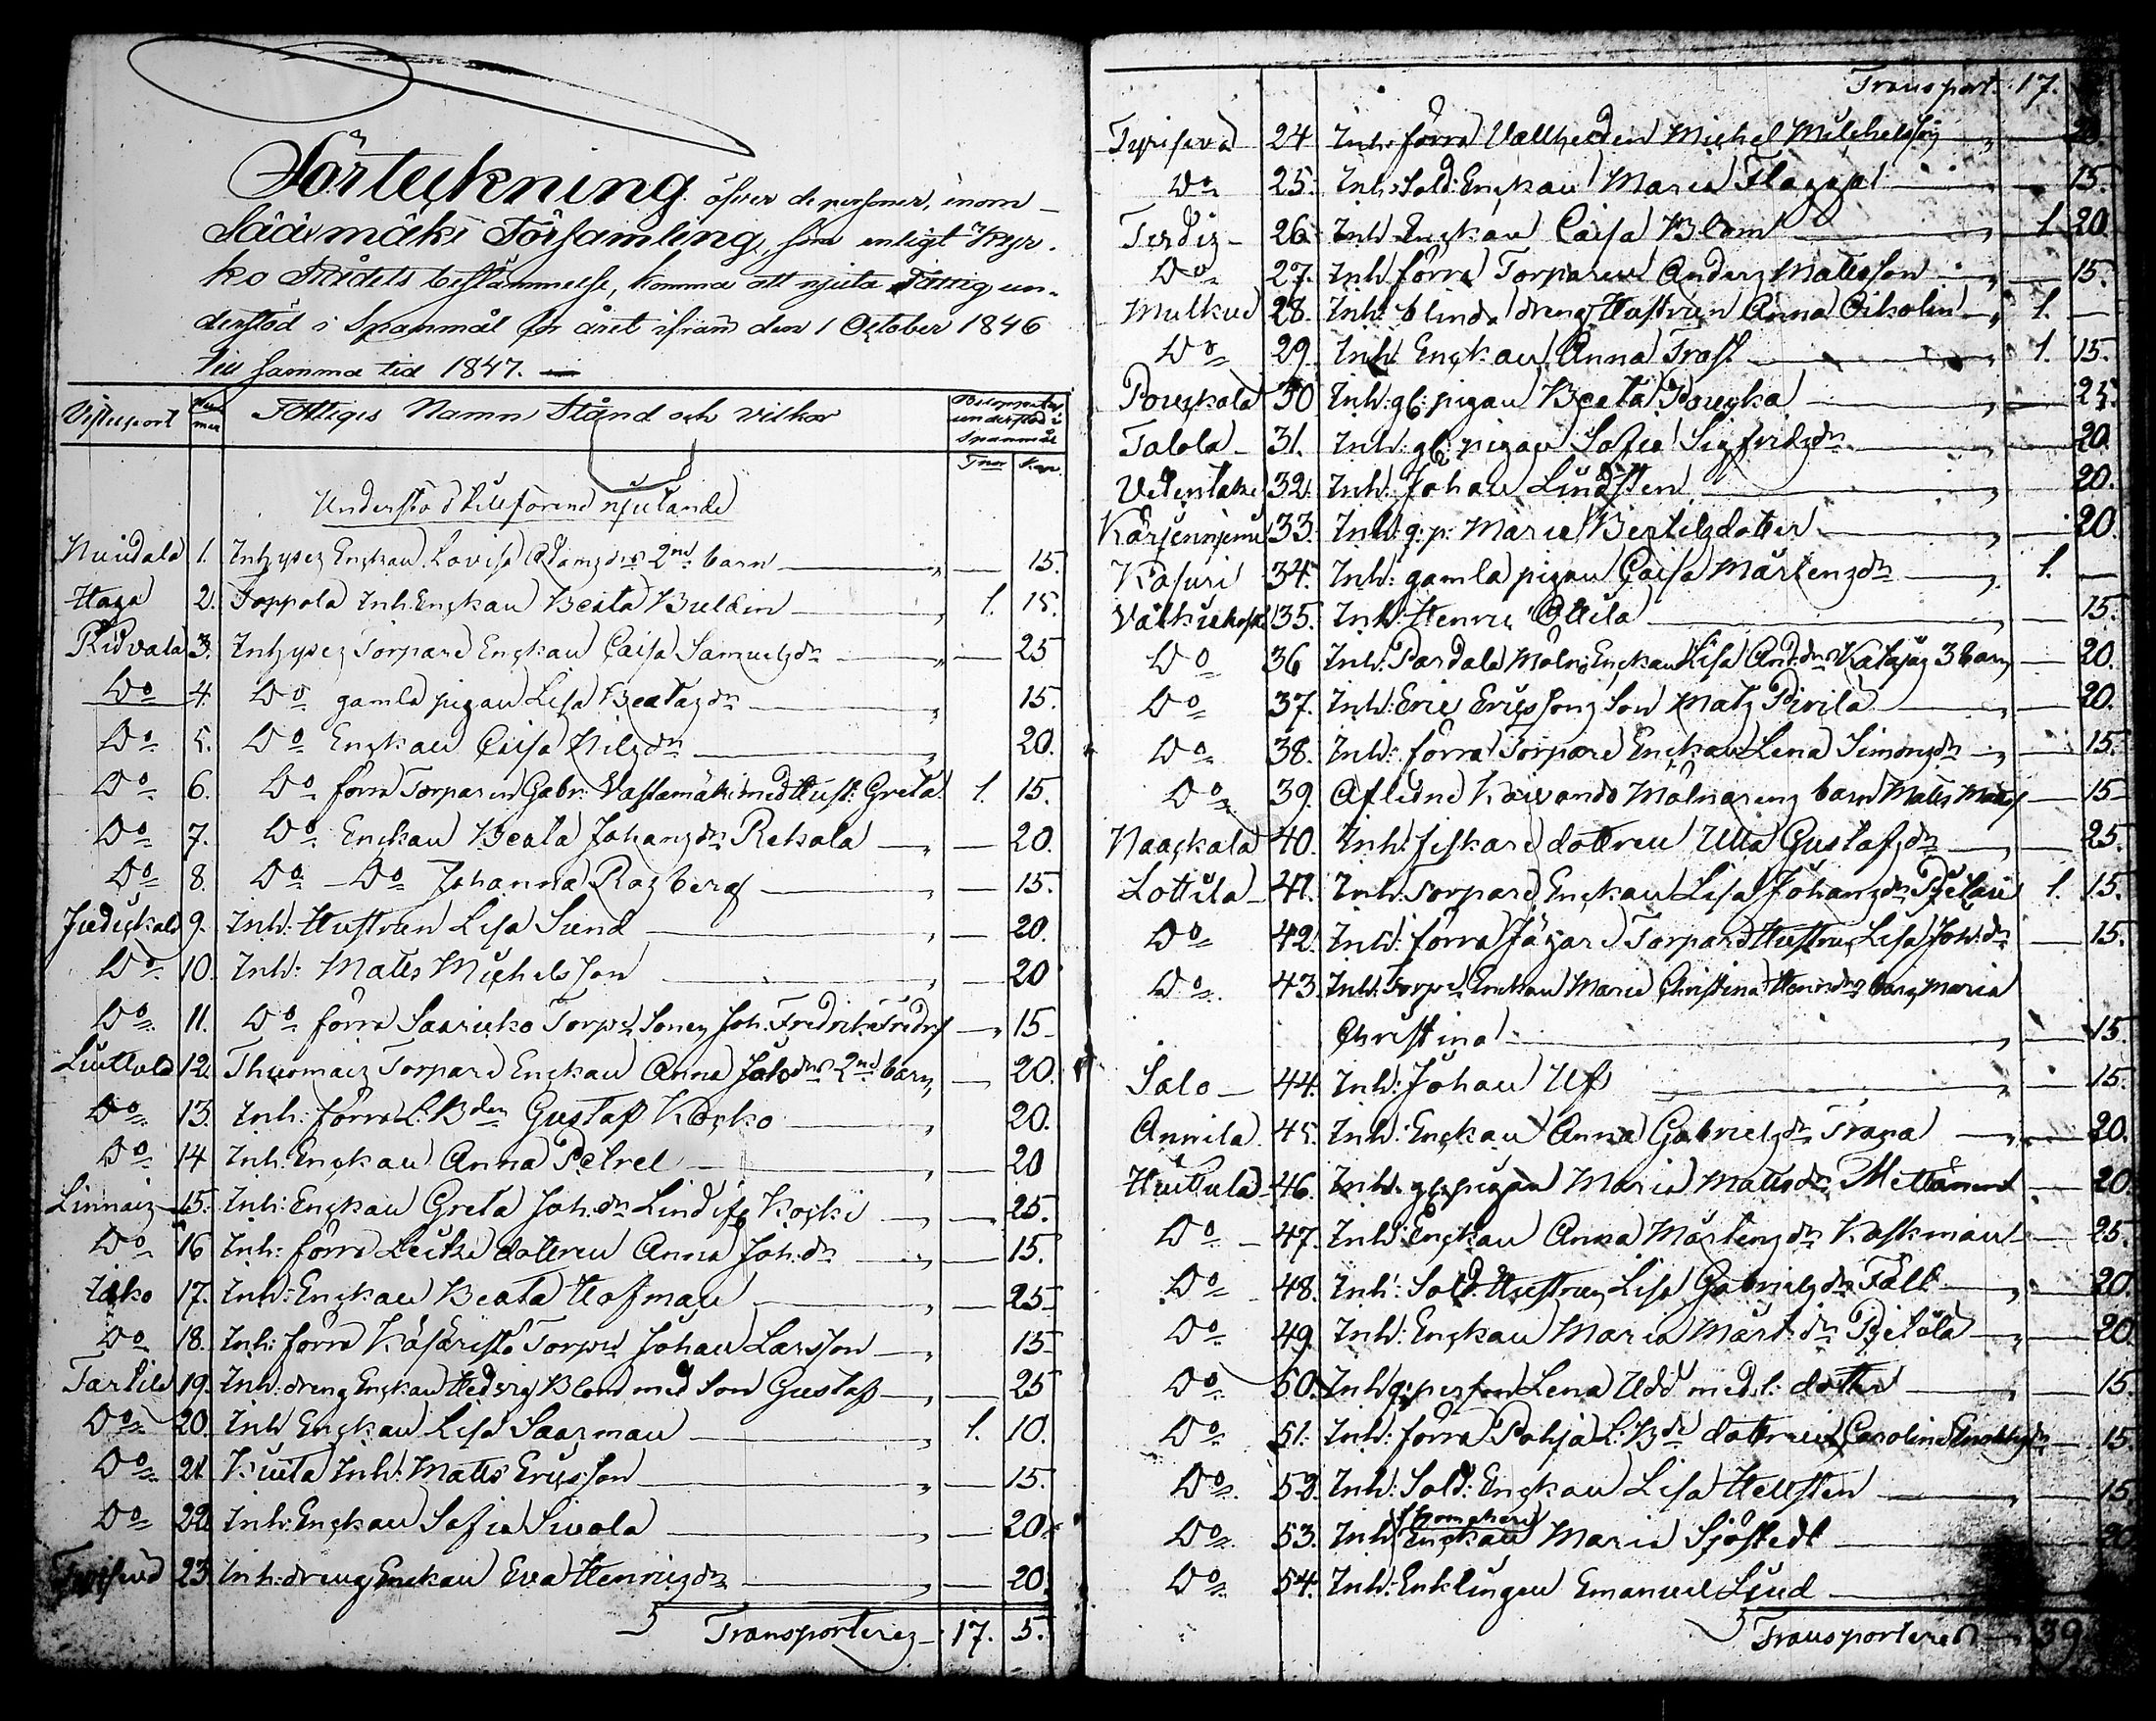 Förteckning öfver de personer, inom
Sääxmäki Församling, som enligt Kyr-
ko Rådets bestämmelse, komma att njuta Fattig un-
derstöd i Spanmål för året ifrån den 1 October 1846
till samma tid 1847.
Vistelseort Num mer Fattiges Namn Stånd och vilkor Beloppet af understöd i Spanmål
Tnor Kap.
Understöd tillförene njutande
Nuidala 1. Inhyses Enckan Lovisa Adamsdrs 2ne barn — 15.
Haga 2. Toppola Inh. Enckan Beata Bulldin 1. 15.
Ridvala 3. Inhyses Torpare Enckan Caisa Samuelsdr — 25
Do 4. Do gamla pigan Lisa Beatasdr 15.
Do 5. Do Enckan Caisa Nilsdr 20.
Do 6. Do förra Torparen Gabr. Vastamäki med Hust. Greta 1. 15.
Do 7. Do Enckan Beata Johansdr Rekola — 20.
Do 8. Do Do Johanna Rosberg — 15.
Judickala 9. Inh: Hustrun Lisa Sund — 20.
Do 10. Inh: Matts Michelsson 20
Do 11. Do förra Saaricko Torp: Sones Joh. Fredrik Fredrs — 15
Luttula 12. Thuomais Torpare Enckan Anna Johdrs 2ne barn — 20.
Do 13. Inh: förra L: Bden Gustaf Kocko 20.
Do 14 Inh: Enckan Anna Petrel — 20
Linnais 15. Inh: Enckan Greta Joh.dr Lindqv. Kocki — 25.
Do 16 Inh: förra Leitzi dottren Anna Joh.dr — 15.
Jako 17. Inh: Enckan Beata Hofman — 25
Do 18. Inh: förra Torpn Johan Larsson — 15
Tarttila 19. Inh: dreng Enckan Hedvig Blom med Son Gustaf — 25
Do 20. Inh Enckan Lisa Saarman 1. 10.
Do 21. Kuuta Inh: Matts Ericsson — 15.
Do 22. Inh: Enckan Sofia Sivola — 20.
23 Inh: dreng Enckan Eva Henricsdr — 20.
Transporteras 17. 5.
Transport. 17.
24 Inh: förra Vallherden Michel Michelsson
Do 25. Inh: Sold: Enckan Maria Flagga — 15.
26. Inh Enckan Caisa Blom 1. 20
Do 27. Inh förra Torparen Anders Mattsson — 15.
28. Inh: blinda dreng Hustrun Anna 1. —
Do 29. Inh Enckan Anna Trast 1. 15.
30 Inh: gl: pigan Beata — 25.
31. Inh: gl: pigan Sofia Sigfridsdr — 20.
32. Inh: Johan Lindsten 20.
33. Inh: g: p: Maria Bertilsdotter 20.
34. Inh: gamla pigan Caisa Mårtensdr 1. —
35. Inh: Henric Ottila 15.
Do 36 Inh: Pardala Möln: Enckan Lisa And:drs 3 barn — 20.
Do 37. Inh: Eric Ericssons Son Mats Pivila 20.
Do 38. Inh: förra Torpare Enckan Lena Simonsdr — 15.
Do 39. Aflidne Mölnarens barn Matts — 15
Naackala 40. Inh: fiskare dottren Ulla Gustafsdr — 25.
Lottila 41. Inh: Torpare Enckan Lisa Johansdr 1. 15.
Do 42. Inh: förra Jägare Torpare Hustrun Lisa Joh:dr — 15.
Do 43. Inh: Torp: Enckan Maria Christina Henr:drs barn Maria
Christina — 15.
Salo 44. Inh: Johan Ulf — 15.
Annila 45. Inh: Enckan Anna Gabrielsdr Trana — 20.
Huittula 46. Inh: gl: pigan Maria Mattsdr — 20.
Do 47. Inh: Enckan Anna Mårtensdr — 25.
Do 48. Inh: Sold. Hustrun Lisa Gabrielsdr Fält — 20.
Do 49. Inh: Enckan Maria Mårt:dr — 20
Do 50. Inh g: person Lena Udd med s: dotter — 15.
Do 51. Inh: förra Pohja L: Bde dottren Carolina — 15.
Do 52. Inh: Sold: Enckan Lisa Hellsten — 15.
Do 53. Inh Enckan Maria Sjöstedt 20
Do 54. Inh: Enklingen Emanuel Ljud
Transporteras 39